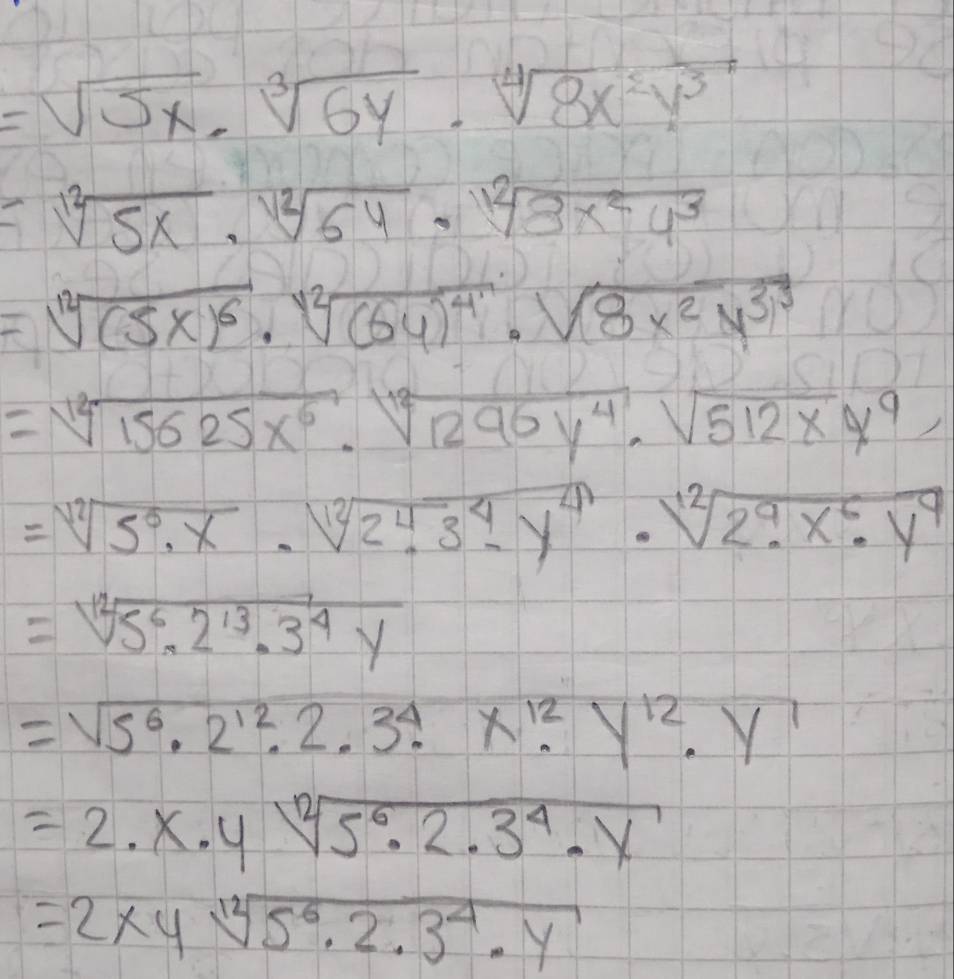 = √5x . ∛6y . ∜8x²y³
= ¹²√5x . ¹²√6y . ¹²√8x²y³
= ¹²√(5x)⁶ . ¹²√(6y)⁴ . √(8x²y³)³
= ¹²√15625x⁶ . ¹²√1296y⁴ . √512x y⁹
= ¹²√5⁶.x . ¹²√2⁴.3⁴.y⁴ . ¹²√2⁹.x⁶.y⁹
= ¹²√5⁶.2¹³.3⁴ y
= √5⁶.2¹².2.3⁴. x¹². y¹².y
= 2.x.y ¹²√5⁶.2.3⁴.y
= 2xy ¹²√5⁶.2.3⁴.y